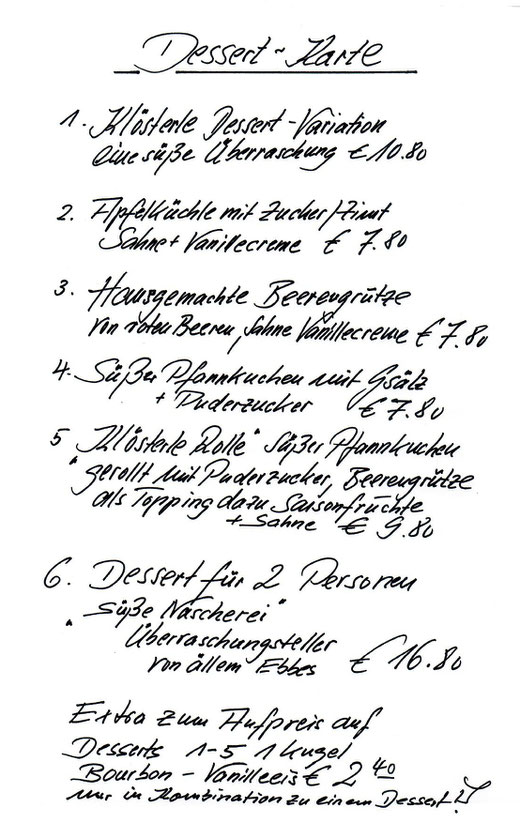 Dessert - Karte
1. Klösterle Dessert-Variation
eine süße Überraschung € 10.80
2. Apfelküchle mit Zucker/Zimt
Sahne + Vanillecreme € 7.80
3. Hausgemachte Beerengrütze
von roten Beeren, Sahne Vanillecreme € 7.80
4. Süßer Pfannkuchen mit Gsälz
+ Puderzucker € 7.80
5 „Klösterle Rolle" süßer Pfannkuchen
gerollt mit Puderzucker, Beerengrütze
als Topping dazu Saisonfrüchte
+ Sahne € 9.80
6. Dessert für 2 Personen
„Süße Nascherei"
Überraschungsteller
von ällem Ebbes € 16.80
Extra zum Aufpreis auf
Desserts 1-5 1 Kugel
Bourbon - Vanilleeis € 2 40
nur in Kombination zu einem Dessert!